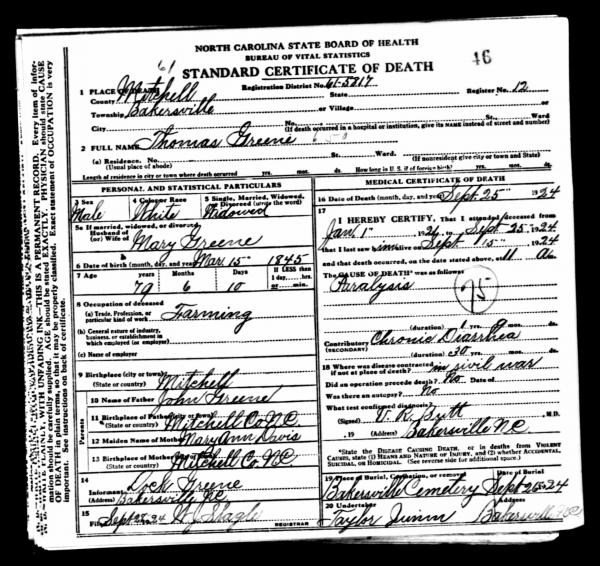 46
NORTH CAROLINA STATE BOARD OF HEALTH
BUREAU OF VITAL STATISTICS
STANDARD CERTIFICATE OF DEATH
61
1 PLACE OF DEATH Registration District No. 61-5817 Register No. 12
County Mitchell State
Township Bakersville or Village or
City No. St. Ward
(If death occurred in a hospital or institution, give its NAME instead of street and number)
2 FULL NAME Thomas Greene
(a) Residence. No. St. Ward.
(Usual place of abode) (If nonresident give city or town and State)
Length of residence in city or town where death occurred yrs. mos. ds. How long in U. S. if of foreign birth? yrs. mos. ds.
PERSONAL AND STATISTICAL PARTICULARS
3 Sex 4 Color or Race 5 Single, Married, Widowed, or Divorced (write the word)
Male White Widowed
5a If married, widowed, or divorced
Husband of
(or) Wife of Mary Greene
6 Date of birth (month, day, and year) Mar 15 1845
7 Age years Months Days If LESS than
1 day, hrs.
or min.
79 6 10
8 Occupation of deceased
(a) Trade, Profession, or
particular kind of work Farming
(b) General nature of industry,
business, or establishment in
which employed (or employer)
(c) Name of employer
9 Birthplace (city or town) Mitchell
(State or country)
Parents
10 Name of Father John Greene
11 Birthplace of Father (city or town)
(State or country) Mitchell Co. N.C.
12 Maiden Name of Mother Mary Ann Davis
13 Birthplace of Mother (city or town)
(State or country) Mitchell Co. N.C.
14
Informant Dock Greene
(Address) Bakersville N.C.
15
Filed Sept 28 1924 W J Slagle
REGISTRAR
MEDICAL CERTIFICATE OF DEATH
16 Date of Death (month, day, and year) Sept. 25 1924
17
I HEREBY CERTIFY, That I attended deceased from
Jan 1 1924, to Sept 25 1924
that I last saw him alive on Sept 15 1924
and that death occurred, on the date stated above, at 11 a.m.
The CAUSE OF DEATH* was as follows:
Paralysis
75
(duration) 1 yrs. 9 mos. ds.
Contributory Chronic Diarrhea
(SECONDARY)
(duration) 30 yrs. mos. ds.
18 Where was disease contracted
if not at place of death? in civil war
Did an operation precede death? No Date of
Was there an autopsy? No
What test confirmed diagnosis?
(Signed) V. R. Butt M.D.
, 19 (Address) Bakersville N.C.
*State the DISEASE CAUSING DEATH, or in deaths from VIOLENT
CAUSES, state (1) MEANS AND NATURE OF INJURY, and (2) whether ACCIDENTAL,
SUICIDAL, or HOMICIDAL. (See reverse side for additional space.)
19 Place of Burial, Cremation, or removal Date of Burial
Bakersville Cemetery Sept 26 1924
20 Undertaker Address
Bakersville N.C.